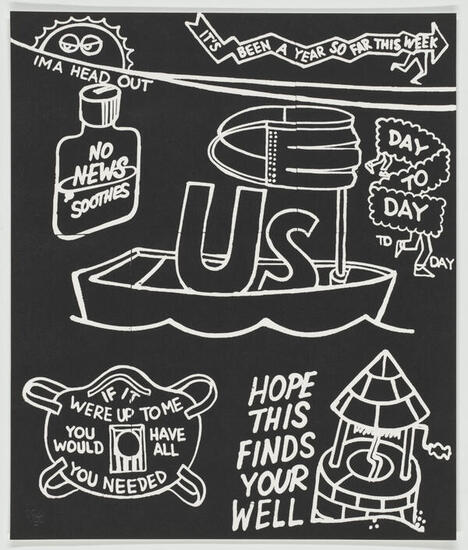 IT'S BEEN A YEAR SO FAR THIS WEEK
IMA HEAD OUT
NO
NEWS
SOOTHES
DAY
TO
DAY
TO DAY
US
IF IT
WERE UP TO ME
YOU HAVE
WOULD ALL
YOU NEEDED
HOPE
THIS
FINDS
YOUR
WELL